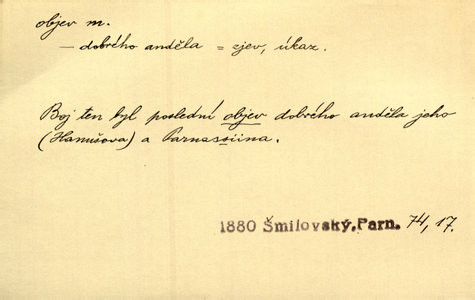 objev m.
— dobrého anděla = zjev, úkaz.
Boj ten byl poslední objev dobrého anděla jeho
(Hanušova) a Parnassiina.
1880 Šmilovský, Parn. 74, 17.